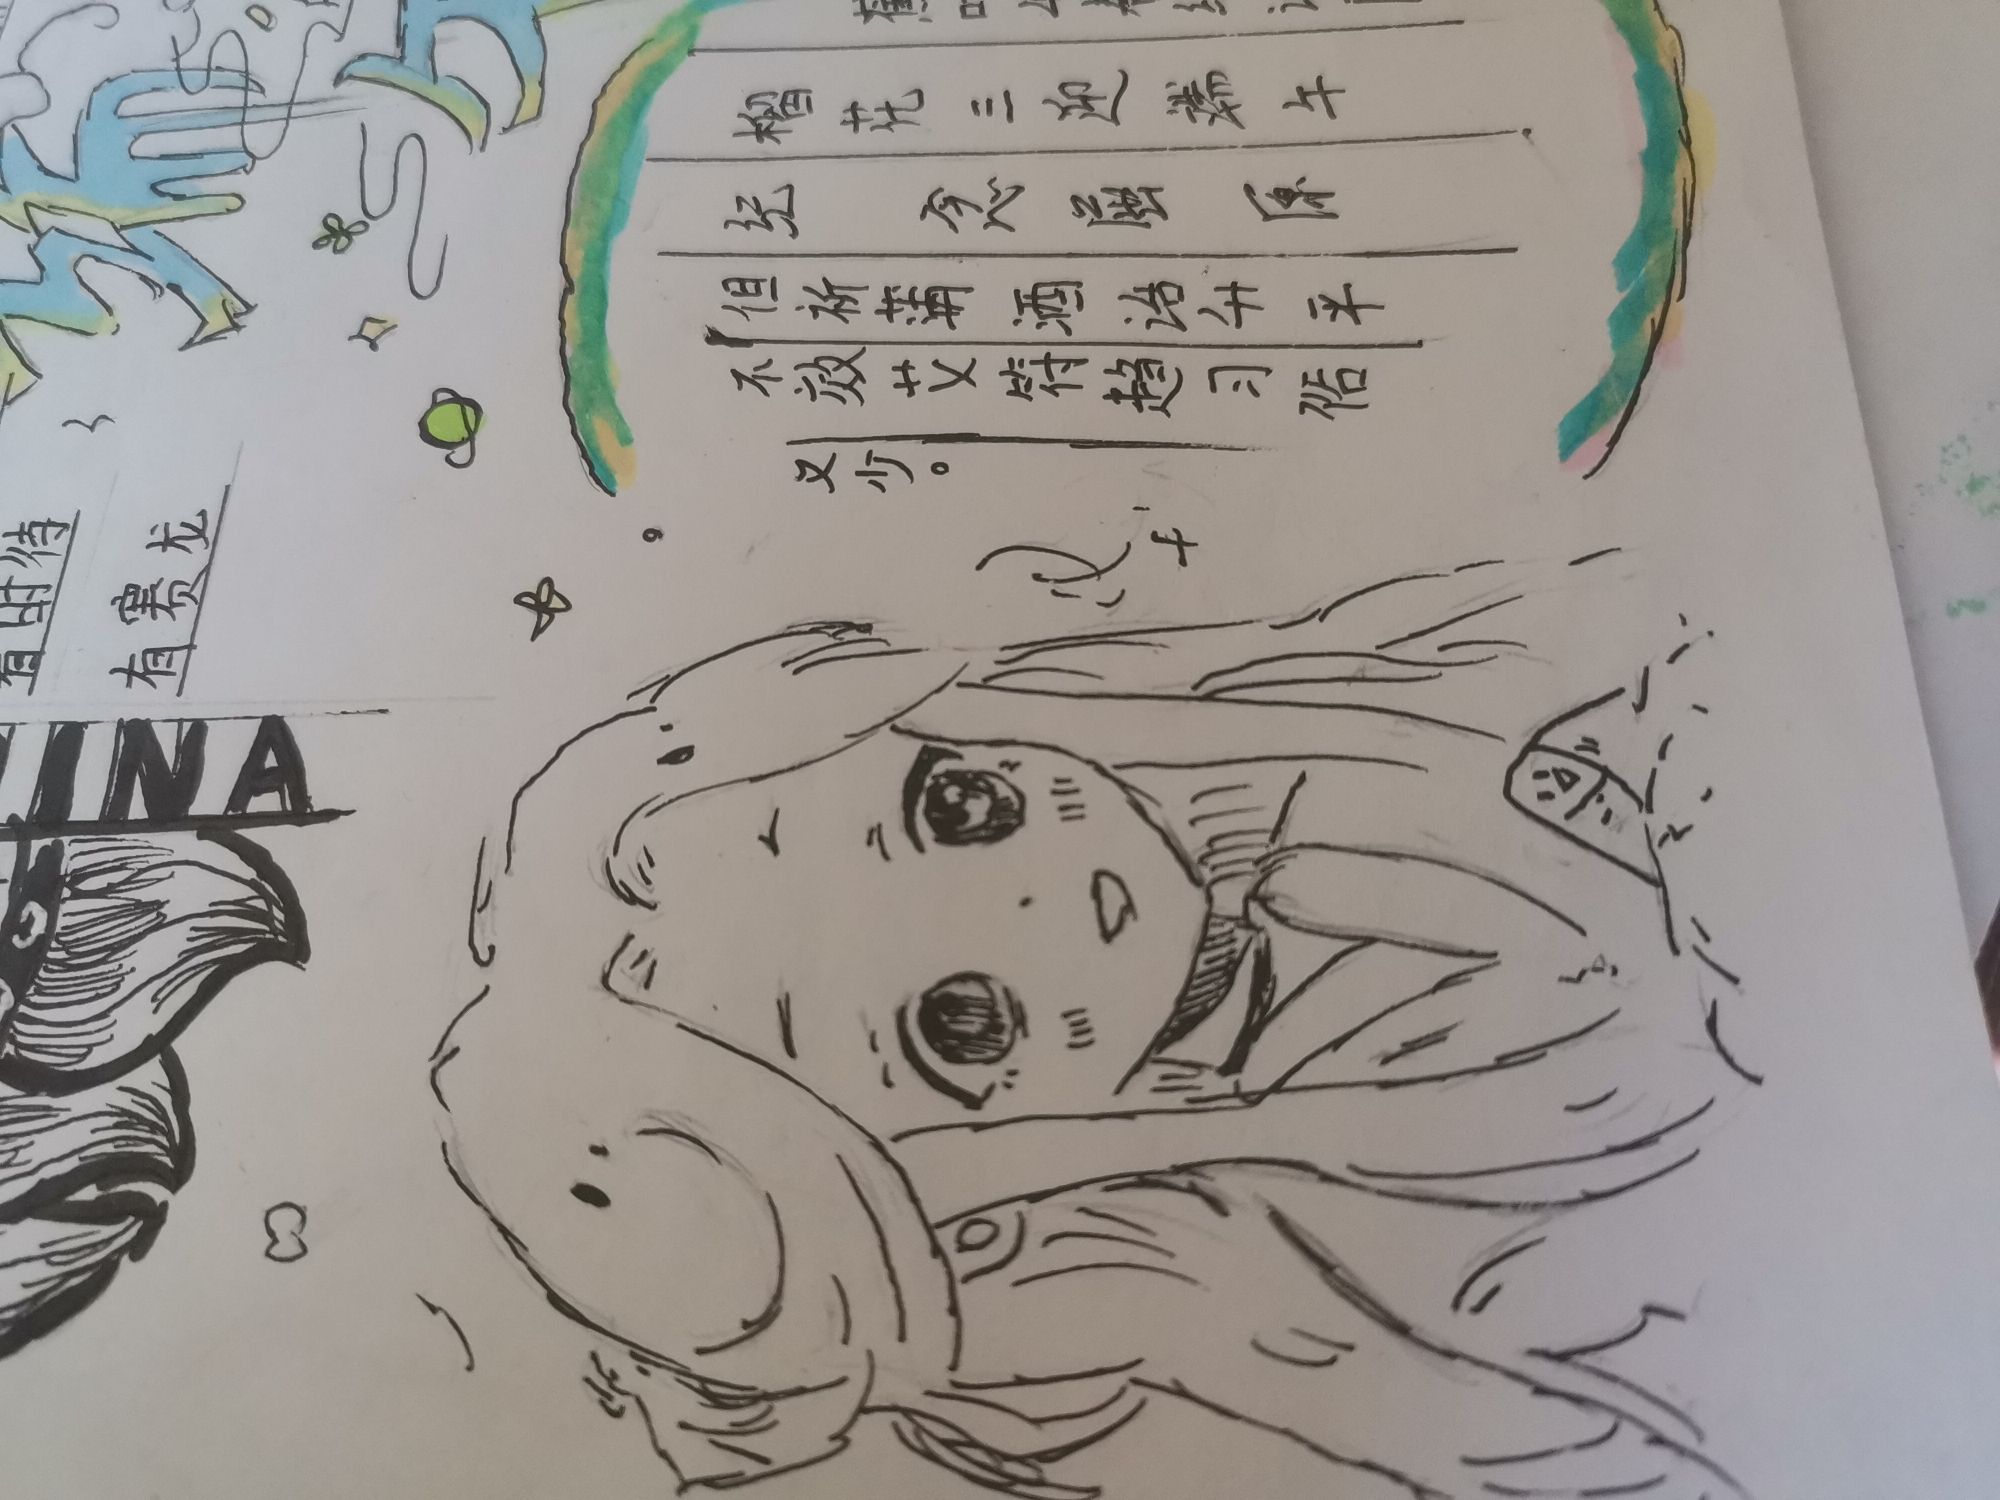 榴花三迎端午
纪念屈原
但祈蒲酒话升平
不效艾符趋习俗
又少。
时待
有赛龙
INA